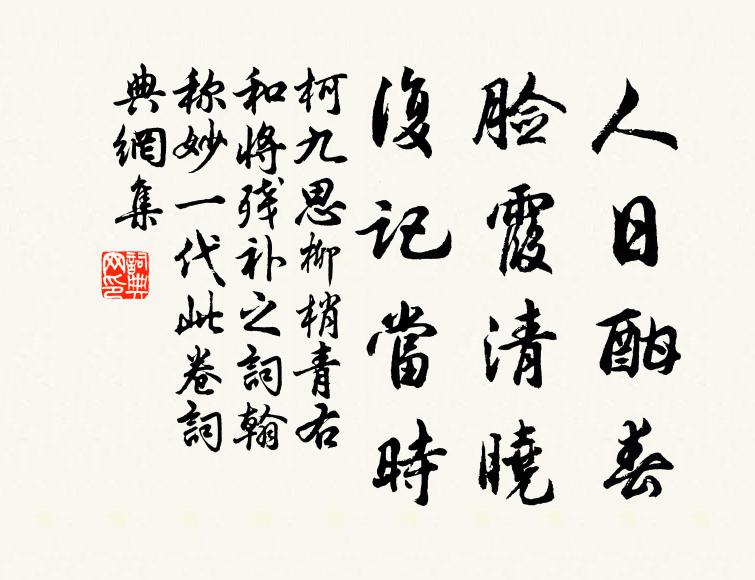 人日酣春
脸霞清曉
復記當時
柯九思柳梢青右
和將残补之詞翰
称妙一代此卷詞
典網集
詞典網印